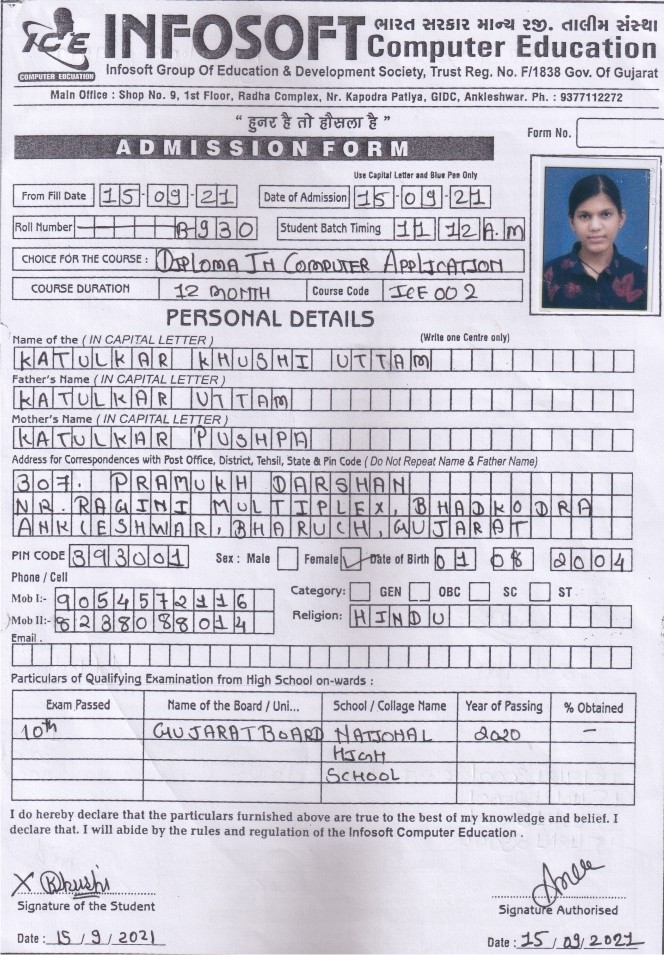 ICE
COMPUTER EDCUATION
INFOSOFT
ભારત સરકાર માન્ય રજી. તાલીમ સંસ્થા
Computer Education
Infosoft Group Of Education & Development Society, Trust Reg. No. F/1838 Gov. Of Gujarat
Main Office : Shop No. 9, 1st Floor, Radha Complex, Nr. Kapodra Patiya, GIDC, Ankleshwar. Ph. : 9377112272
“ हुनर है तो हौसला है ”
Form No.
ADMISSION FORM
Use Capital Letter and Blue Pen Only
From Fill Date 15-09-21 Date of Admission 15-09-21
Roll Number B930 Student Batch Timing 11 12 A.M
CHOICE FOR THE COURSE : DIPLOMA IN COMPUTER APPLICATION
COURSE DURATION 12 MONTH Course Code ICE 002
PERSONAL DETAILS
Name of the ( IN CAPITAL LETTER ) (Write one Centre only)
KATULKAR KHUSHI UTTAM
Father's Name ( IN CAPITAL LETTER )
KATULKAR UTTAM
Mother's Name ( IN CAPITAL LETTER )
KATULKAR PUSHPA
Address for Correspondences with Post Office, District, Tehsil, State & Pin Code ( Do Not Repeat Name & Father Name)
307. PRAMUKH DARSHAN
NR. RAGINI MULTIPLEX, BHADKODRA
ANKLESHWAR, BHARUCH, GUJARAT
PIN CODE 393001 Sex : Male Female ✓ Date of Birth 01 08 2004
Phone / Cell
Mob I:- 9054572116 Category: GEN OBC SC ST
Mob II:- 8238088014 Religion: HINDU
Email .
Particulars of Qualifying Examination from High School on-wards :
Exam Passed Name of the Board / Uni... School / Collage Name Year of Passing % Obtained
10th GUJARAT BOARD NATIONAL 2020 -
HIGH
SCHOOL
I do hereby declare that the particulars furnished above are true to the best of my knowledge and belief. I
declare that. I will abide by the rules and regulation of the Infosoft Computer Education .
X Khushi
Signature of the Student
Signature Authorised
Date : 15 / 9 / 2021
Date : 15 / 09 / 2021